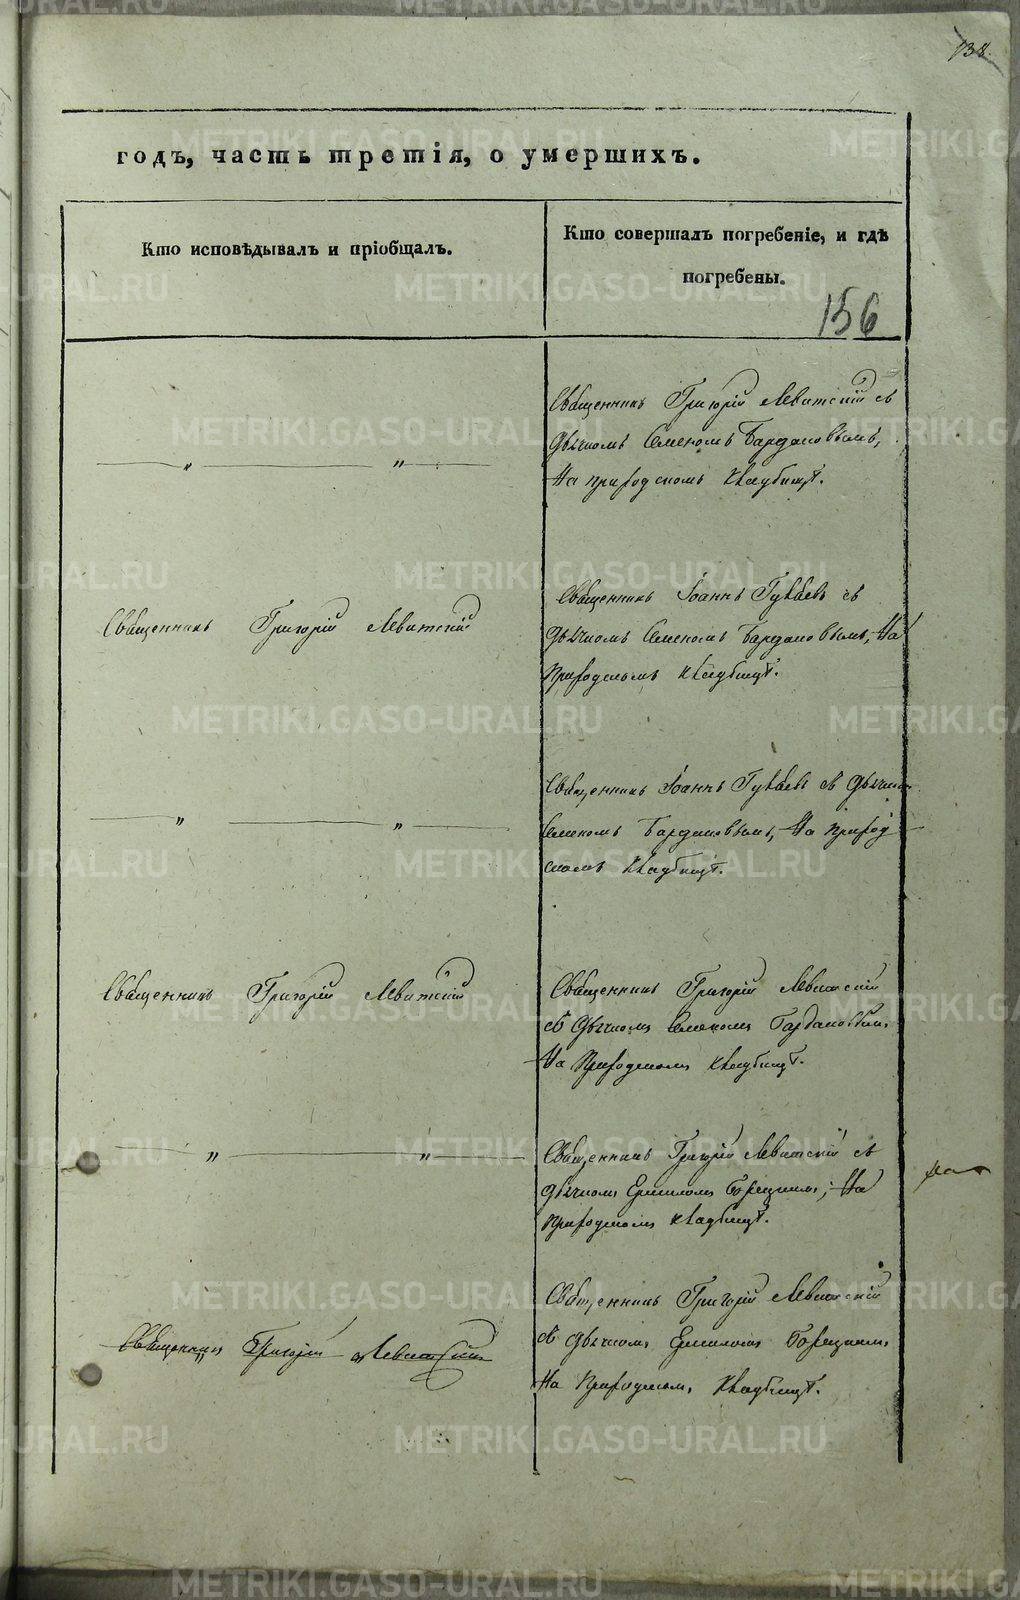 138.
годъ, часть третія, о умершихъ.
Кто исповѣдывалъ и пріобщалъ.
Кто совершалъ погребеніе, и гдѣ
погребены.
156
Священникъ Григорій Левитскій съ
дьячкомъ Семеномъ
На приходскомъ кладбищѣ.
Священникъ Григорій Левитскій
Священникъ Іоаннъ съ
дьячкомъ Семеномъ На
Приходскомъ кладбищѣ.
Священникъ Іоаннъ съ дьячком
Семеномъ На приход
скомъ кладбищѣ.
Священникъ Григорій Левитскій
Священникъ Григорій Левитскій
съ дьячкомъ Семеномъ
На Приходскомъ кладбищѣ.
Священникъ Григорій Левитскій съ
дьячкомъ На
Приходскомъ кладбищѣ.
Священникъ Григорій Левитскій
Священникъ Григорій Левитскій
съ дьячкомъ
На Приходскомъ Кладбищѣ.
METRIKI.GASO-URAL.RU